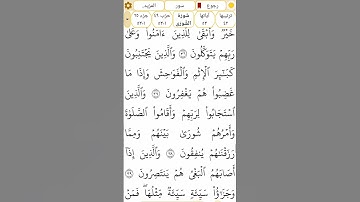 رجوع سور المزيد..
ترتيبها ٤٢ آياتها ٥٣ سورة الشورى حزب ٤٩ جزء ٢٥
خَيْرٌ وَأَبْقَىٰ لِلَّذِينَ ءَامَنُوا۟ وَعَلَىٰ
رَبِّهِمْ يَتَوَكَّلُونَ وَالَّذِينَ يَجْتَنِبُونَ
كَبَٰٓئِرَ الْإِثْمِ وَالْفَوَاحِشَ وَإِذَا مَا
غَضِبُوا۟ هُمْ يَغْفِرُونَ وَالَّذِينَ
اسْتَجَابُوا۟ لِرَبِّهِمْ وَأَقَامُوا۟ الصَّلَوٰةَ
وَأَمْرُهُمْ شُورَىٰ بَيْنَهُمْ وَمِمَّا
رَزَقْنَٰهُمْ يُنفِقُونَ وَالَّذِينَ إِذَآ
أَصَابَهُمُ الْبَغْىُ هُمْ يَنتَصِرُونَ
وَجَزَٰٓؤُا۟ سَيِّئَةٍ سَيِّئَةٌ مِّثْلُهَا فَمَنْ